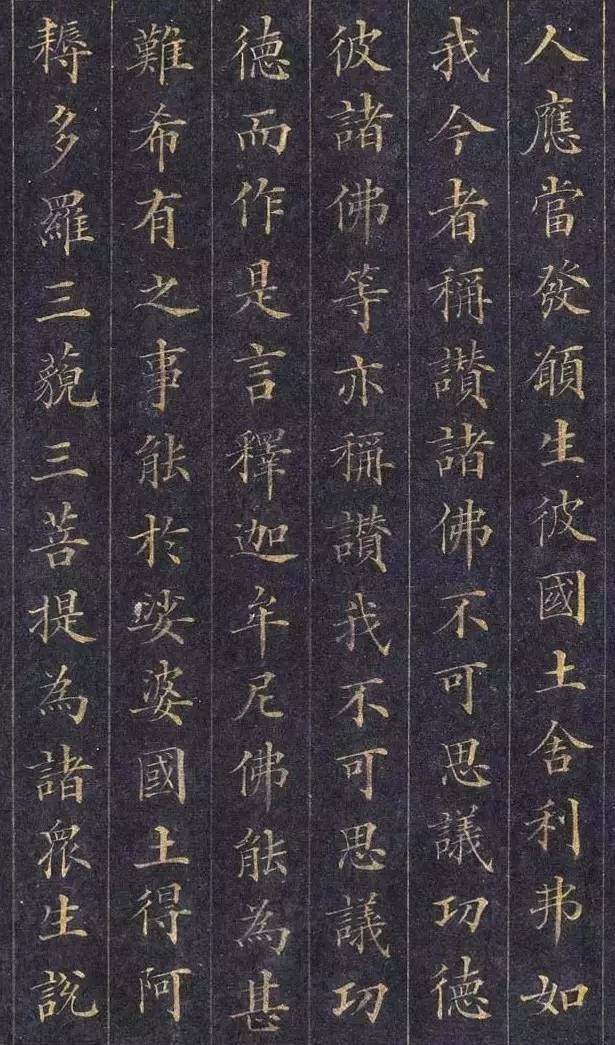 人應當發願生彼國土舍利弗如
我今者稱讃諸佛不可思議功德
彼諸佛等亦稱讃我不可思議功
德而作是言釋迦牟尼佛能為甚
難希有之事能於娑婆國土得阿
耨多羅三藐三菩提為諸衆生說